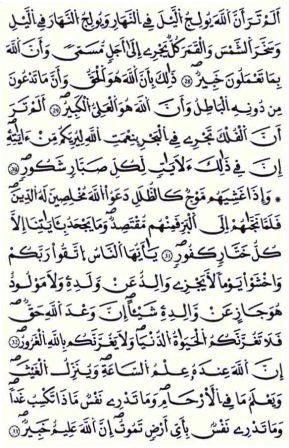 أَلَمْ تَرَ أَنَّ ٱللَّهَ يُولِجُ ٱلَّيْلَ فِي ٱلنَّهَارِ وَيُولِجُ ٱلنَّهَارَ فِي ٱلَّيْلِ
وَسَخَّرَ ٱلشَّمْسَ وَٱلْقَمَرَ كُلٌّ يَجْرِي إِلَىٰ أَجَلٍ مُّسَمًّى وَأَنَّ ٱللَّهَ
بِمَا تَعْمَلُونَ خَبِيرٌ ذَٰلِكَ بِأَنَّ ٱللَّهَ هُوَ ٱلْحَقُّ وَأَنَّ مَا تَدْعُونَ
مِن دُونِهِ ٱلْبَاطِلُ وَأَنَّ ٱللَّهَ هُوَ ٱلْعَلِيُّ ٱلْكَبِيرُ أَلَمْ تَرَ
أَنَّ ٱلْفُلْكَ تَجْرِي فِي ٱلْبَحْرِ بِنِعْمَتِ ٱللَّهِ لِيُرِيَكُم مِّنْ ءَايَٰتِهِ
إِنَّ فِي ذَٰلِكَ لَءَايَٰتٍ لِّكُلِّ صَبَّارٍ شَكُورٍ
وَإِذَا غَشِيَهُم مَّوْجٌ كَٱلظُّلَلِ دَعَوُا۟ ٱللَّهَ مُخْلِصِينَ لَهُ ٱلدِّينَ
فَلَمَّا نَجَّىٰهُمْ إِلَى ٱلْبَرِّ فَمِنْهُم مُّقْتَصِدٌ وَمَا يَجْحَدُ بِـَٔايَٰتِنَا إِلَّا
كُلُّ خَتَّارٍ كَفُورٍ يَٰٓأَيُّهَا ٱلنَّاسُ ٱتَّقُوا۟ رَبَّكُمْ
وَٱخْشَوْا۟ يَوْمًا لَّا يَجْزِي وَالِدٌ عَن وَلَدِهِ وَلَا مَوْلُودٌ
هُوَ جَازٍ عَن وَالِدِهِ شَيْـًٔا إِنَّ وَعْدَ ٱللَّهِ حَقٌّ
فَلَا تَغُرَّنَّكُمُ ٱلْحَيَوٰةُ ٱلدُّنْيَا وَلَا يَغُرَّنَّكُم بِٱللَّهِ ٱلْغَرُورُ
إِنَّ ٱللَّهَ عِندَهُ عِلْمُ ٱلسَّاعَةِ وَيُنَزِّلُ ٱلْغَيْثَ
وَيَعْلَمُ مَا فِي ٱلْأَرْحَامِ وَمَا تَدْرِي نَفْسٌ مَّاذَا تَكْسِبُ غَدًا
وَمَا تَدْرِي نَفْسٌ بِأَيِّ أَرْضٍ تَمُوتُ إِنَّ ٱللَّهَ عَلِيمٌ خَبِيرٌ